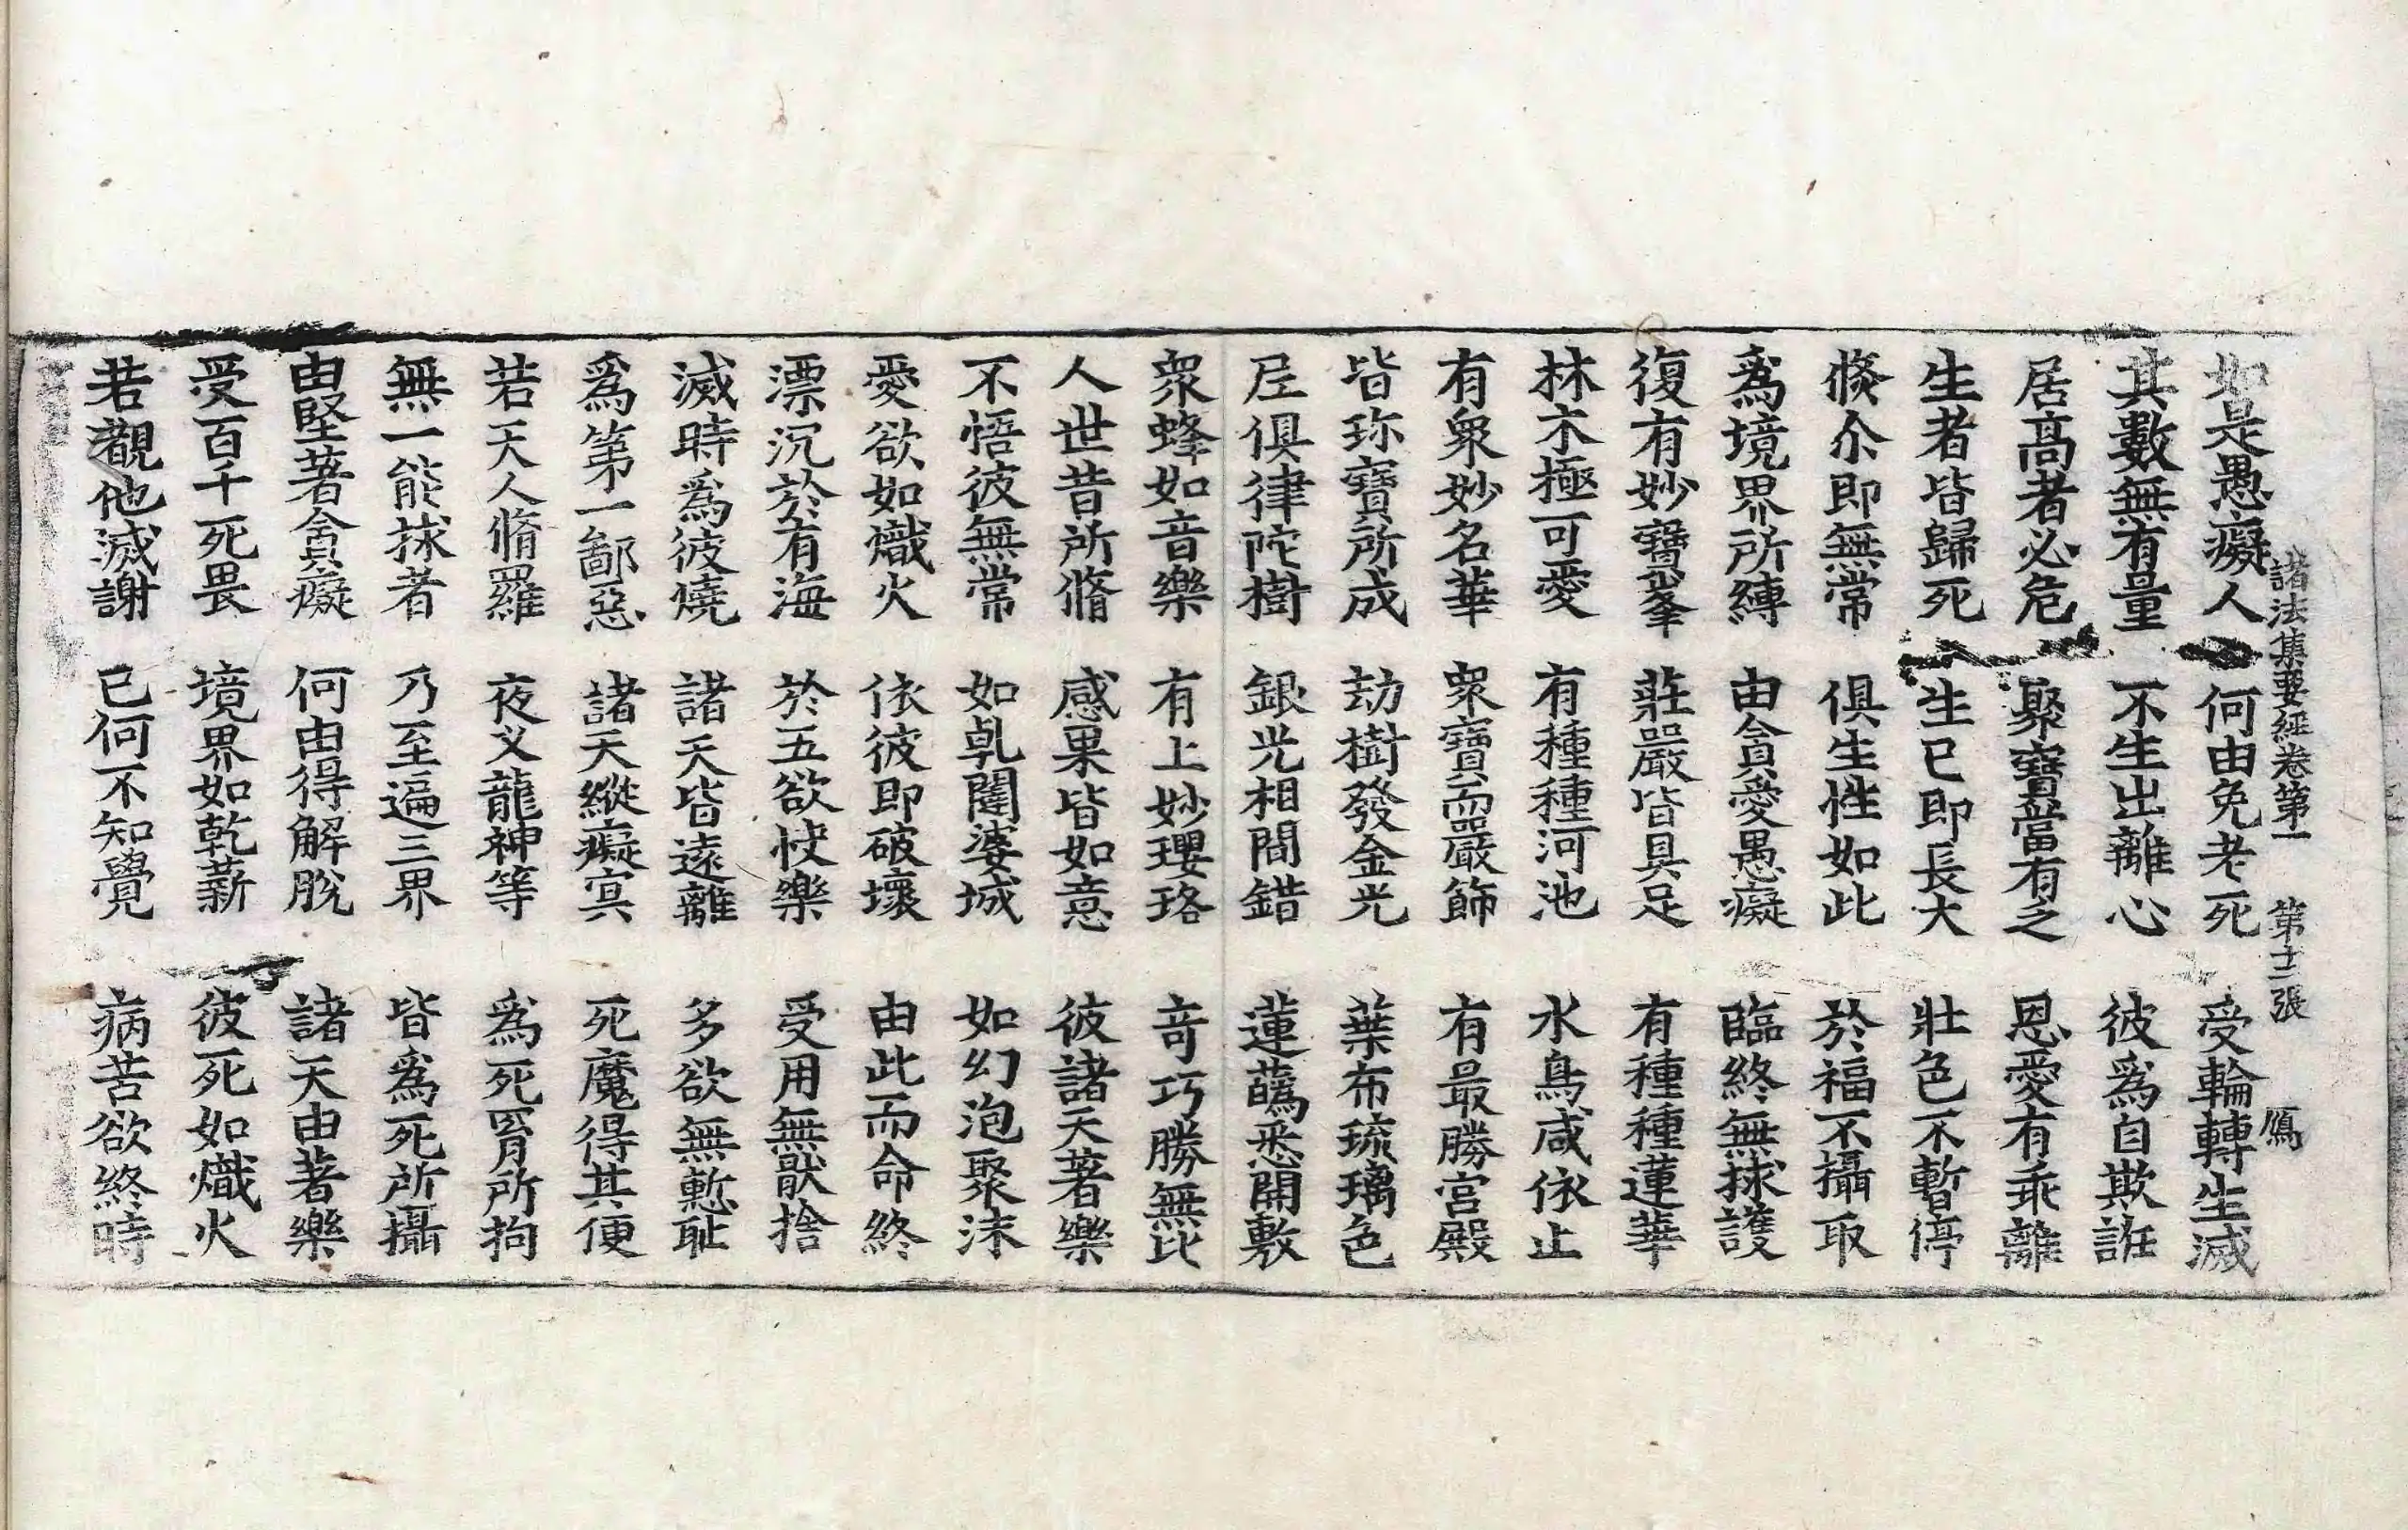 諸法集要經卷第一　第十二張　鴈
如是愚癡人　何由免老死　受輪轉生滅
其數無有量　不生出離心　彼爲自欺誑
居高者必危　聚寶當有之　恩愛有乖離
生者皆歸死　生已即長大　壯色不暫停
倏尒即無常　俱生性如此　於福不攝取
爲境界所縛　由貪愛愚癡　臨終無捄護
復有妙寶峯　莊嚴皆具足　有種種蓮華
林木極可愛　有種種河池　水鳥咸依止
有衆妙名華　衆寶而嚴飾　有最勝宮殿
皆珎寶所成　劫樹發金光　葉布琉璃色
尼俱律陀樹　銀光相間錯　蓮蘤悉開敷
衆蜂如音樂　有上妙瓔珞　竒巧勝無比
人世昔所脩　感果皆如意　彼諸天著樂
不悟彼無常　如乹闥婆城　如幻泡聚沫
愛欲如熾火　依彼即破壞　由此而命終
漂沉於有海　於五欲快樂　受用無猒捨
滅時爲彼燒　諸天皆遠離　多欲無慙耻
爲第一鄙惡　諸天縱癡㝠　死魔得其便
若天人脩羅　夜叉龍神等　爲死罥所拘
無一能捄者　乃至遍三界　皆爲死所攝
由堅著貪癡　何由得解脫　諸天由著樂
受百千死畏　境界如乾薪　彼死如熾火
若觀他滅謝　已何不知覺　病苦欲終時